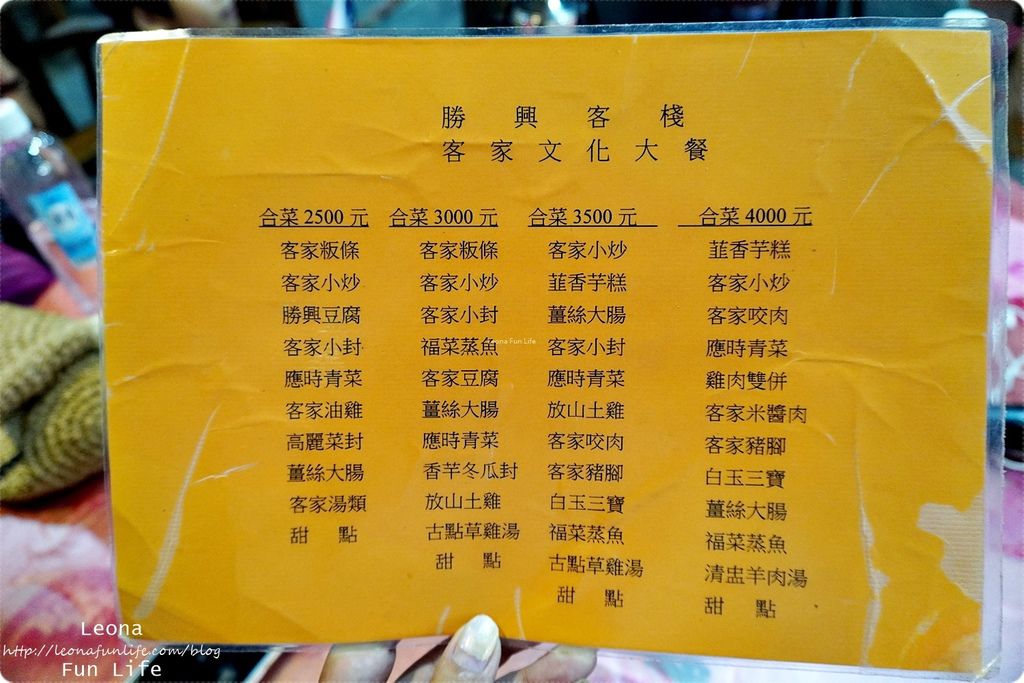 勝興客棧
客家文化大餐
合菜 2500 元
客家粄條
客家小炒
勝興豆腐
客家小封
應時青菜
客家油雞
高麗菜封
薑絲大腸
客家湯類
甜 點
合菜 3000 元
客家粄條
客家小炒
客家小封
福菜蒸魚
客家豆腐
薑絲大腸
應時青菜
香芋冬瓜封
放山土雞
古點草雞湯
甜 點
合菜 3500 元
客家小炒
韮香芋糕
薑絲大腸
客家小封
應時青菜
放山土雞
客家咬肉
客家豬腳
白玉三寶
福菜蒸魚
古點草雞湯
甜 點
合菜 4000 元
韮香芋糕
客家小炒
客家咬肉
應時青菜
雞肉雙併
客家米醬肉
客家豬腳
白玉三寶
薑絲大腸
福菜蒸魚
清盅羊肉湯
甜 點
Leona Fun Life
Leona
http://leonafunlife.com/blog
Fun Life